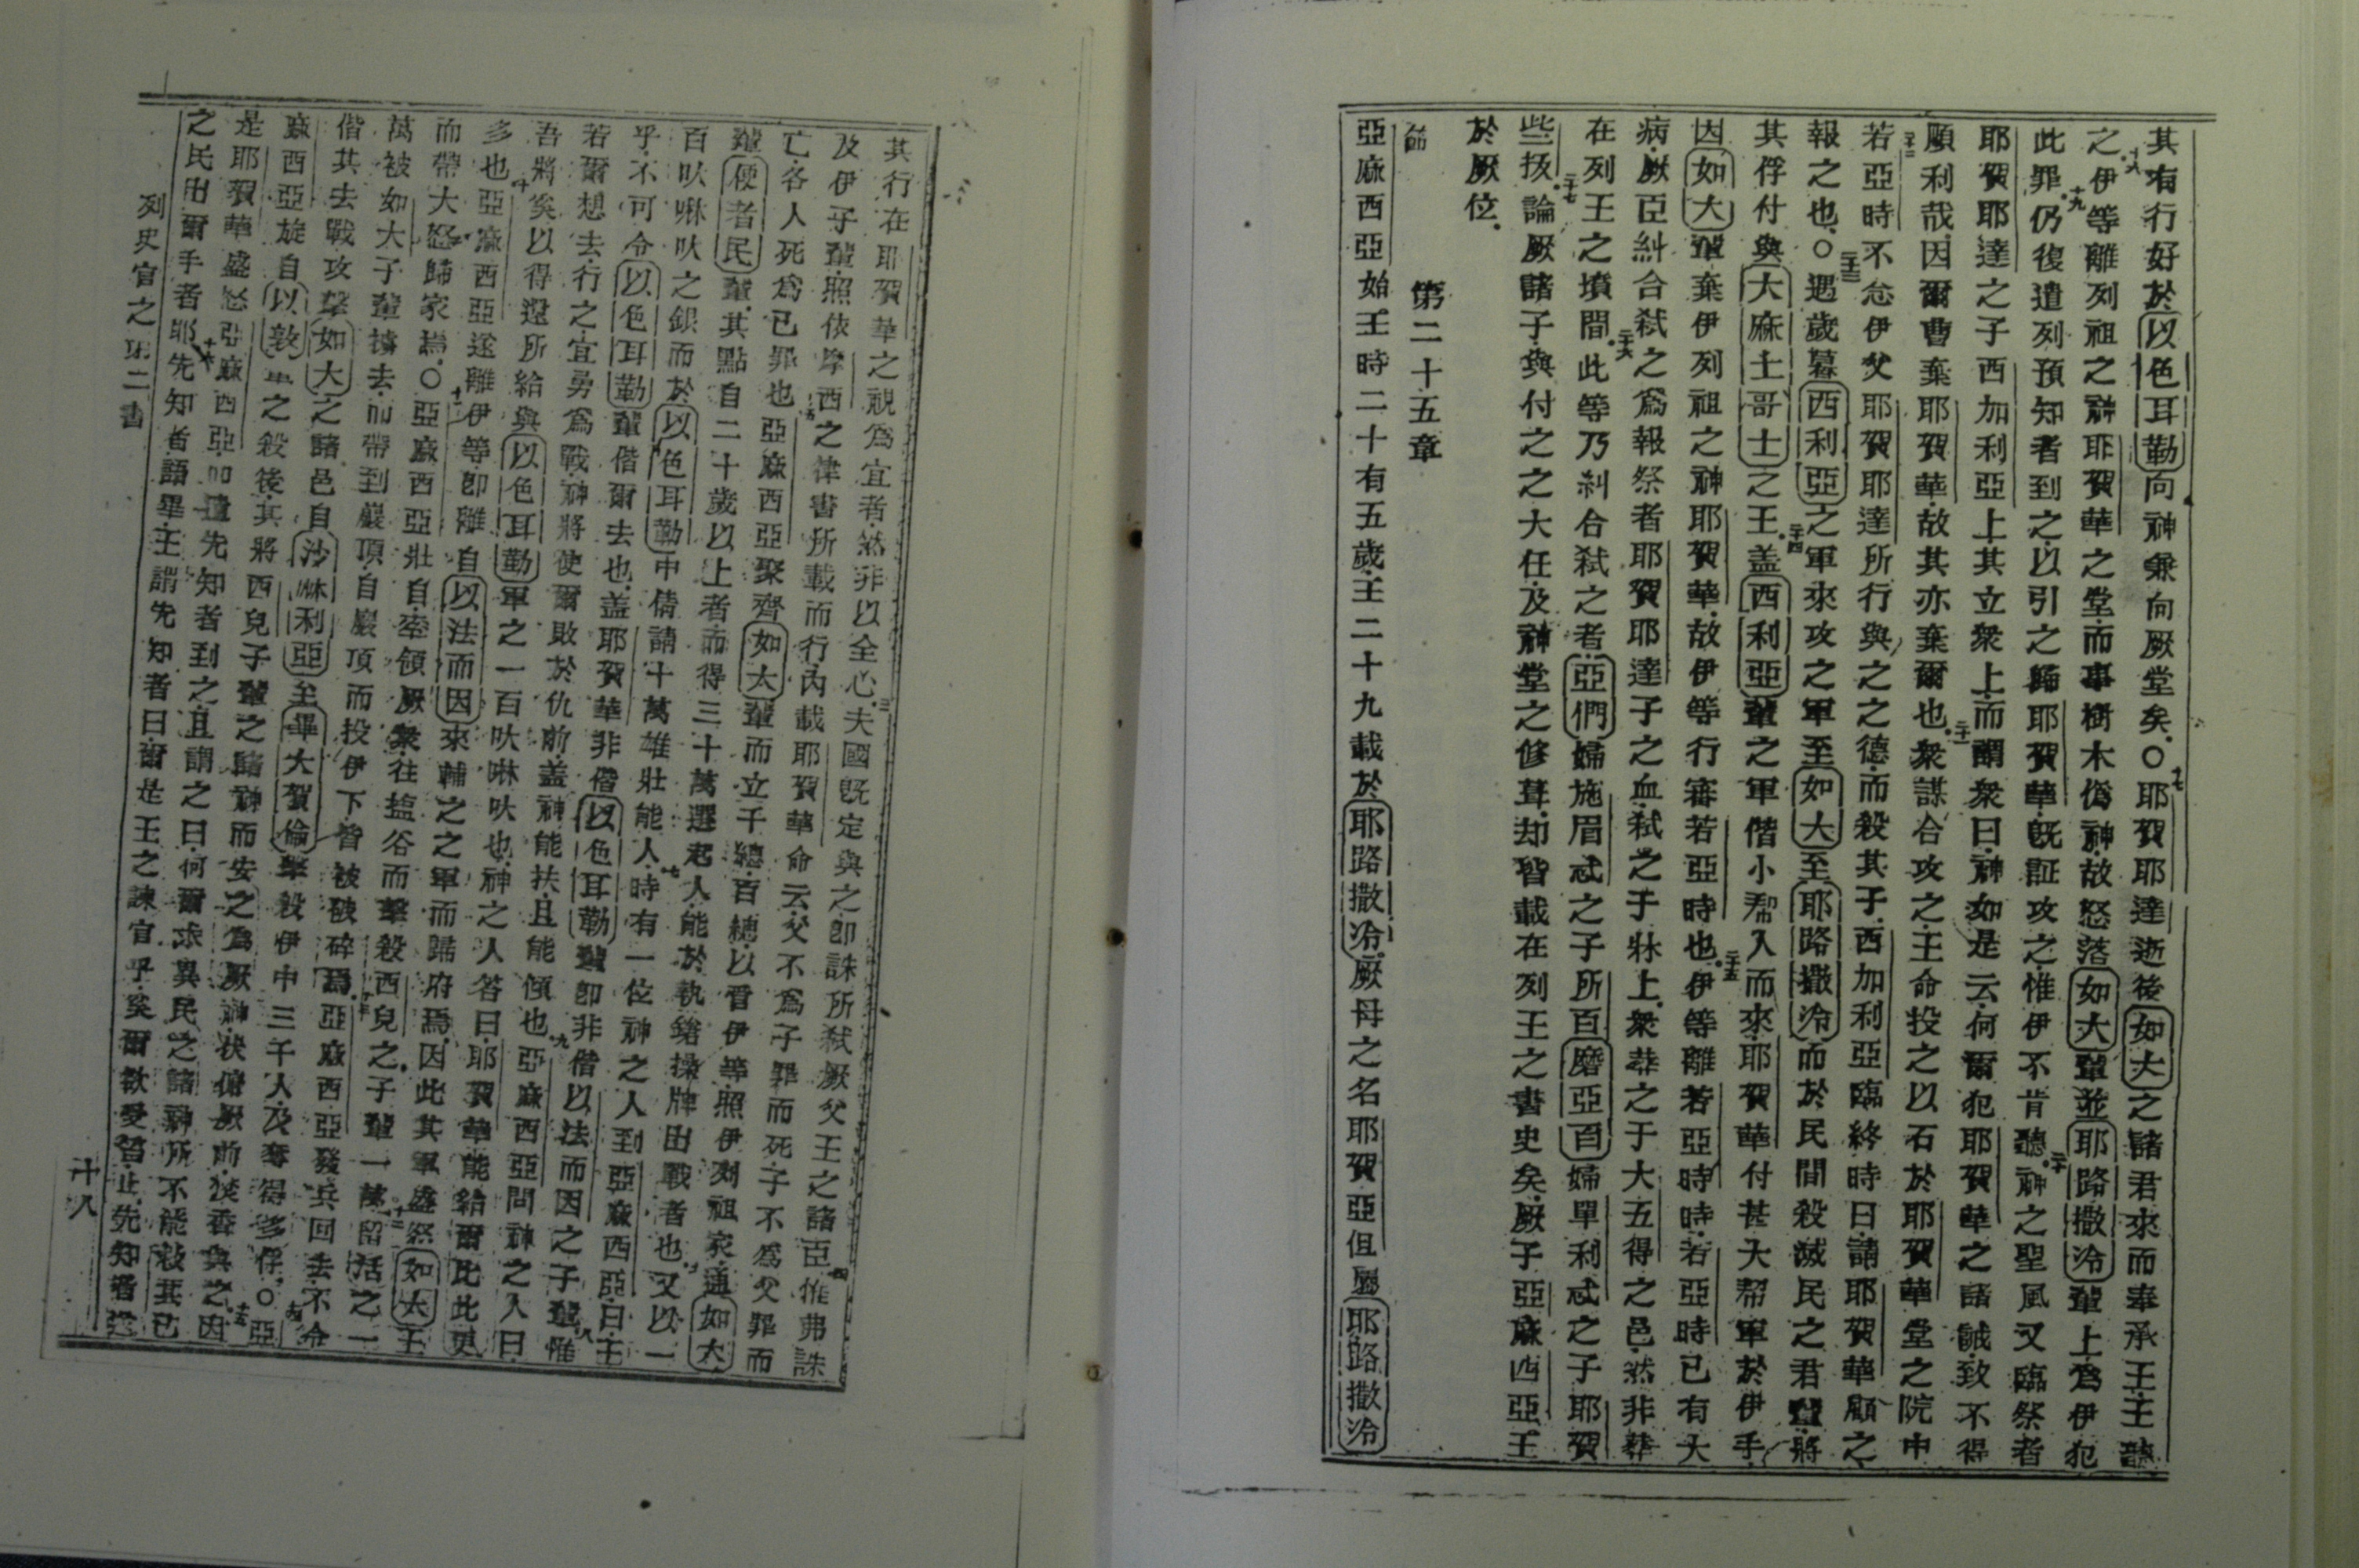 其有行好於以色耳勒向神兼向厥堂矣○十七耶賀耶達逝後如大之諸君來而奉承王王聽
之十八伊等離列祖之神耶賀華之堂而事樹木偽神故怒落如大輩並耶路撒冷輩上為伊犯
此罪十九仍復遣列預知者到之以引之歸耶賀華既証攻之惟伊不肯聽二十神之聖風又臨祭者
耶賀耶達之子西加利亞上其立衆上而謂衆曰神如是云何爾犯耶賀華之諸誡致不得
順利哉因爾曹棄耶賀華故其亦棄爾也二十一衆謀合攻之王命投之以石於耶賀華堂之院中
二十二若亞時不念伊父耶賀耶達所行與之之德而殺其子西加利亞臨終時曰請耶賀華顧之
報之也○二十三遇歲暮西利亞之軍來攻之軍至如大至耶路撒冷而於民間殺滅民之君輩將
其俘付與大麻士哥士之王二十四盖西利亞輩之軍偕小幇入而來耶賀華付甚大幇軍於伊手
因如大輩棄伊列祖之神耶賀華故伊等行審若亞時也二十五伊等離若亞時時若亞時已有大
病厥臣糾合弒之為報祭者耶賀耶達子之血弒之于牀上衆葬之于大五得之邑然非葬
在列王之墳間二十六此等乃糾合弒之者亞們婦施眉忒之子所百磨亞百婦單利忒之子耶賀
些扳二十七論厥諸子與付之之大任及神堂之修葺却皆載在列王之書史矣厥子亞麻西亞王
於厥位
第二十五章
節
亞麻西亞始王時二十有五歲王二十九載於耶路撒冷厥母之名耶賀亞但屬耶路撒冷
其行在耶賀華之視為宜者然非以全心三夫國既定與之即誅所弒厥父王之諸臣四惟弗誅
及伊子輩照依摩西之律書所載而行內載耶賀華命云父不為子罪而死子不為父罪而
亡各人死為已罪也五亞麻西亞聚齊如大輩而立千總百總以管伊等照伊列祖家通如大
輩便者民輩其點自二十歲以上者而得三十萬選起人能於執鎗操牌出戰者也六又以一
百吠啉吠之銀而於以色耳勒中倩請十萬雄壯能人七時有一位神之人到亞麻西亞曰王
乎不可令以色耳勒輩偕爾去也盖耶賀華非偕以色耳勒輩即非偕以法而因之子輩八惟
若爾想去行之宜勇為戰神將使爾敗於仇前盖神能扶且能傾也九亞麻西亞問神之人曰
吾將奚以得還所給與以色耳勒軍之一百吠啉吠也神之人答曰耶賀華能給爾比此更
多也十亞麻西亞遂離伊等即離自以法而因來輔之之軍而歸府焉因此其軍盛怒如大王
而帶大怒歸家焉○十一亞麻西亞壯自率領厥衆往塩谷而擊殺西兒之子輩一萬十二留活之一
萬被如大子輩擄去而帶到巖頂自巖頂而投伊下皆被破碎焉十三亞麻西亞發兵回去不令
偕其去戰攻擊如大之諸邑自沙麻利亞至畢大賀倫擊殺伊中三千人及奪得多俘○十四亞
麻西亞旋自以敦輩之殺後其將西兒子輩之諸神而安之為厥神伏俯厥前焚香與之十五因
是耶賀華盛怒亞麻西亞而遣先知者到之且謂之曰何爾求異民之諸神所不能救其已
之民出爾手者耶十六先知者語畢王謂先知者曰爾是王之諫官乎奚爾欲受笞止先知者
列史官之第二書
十八